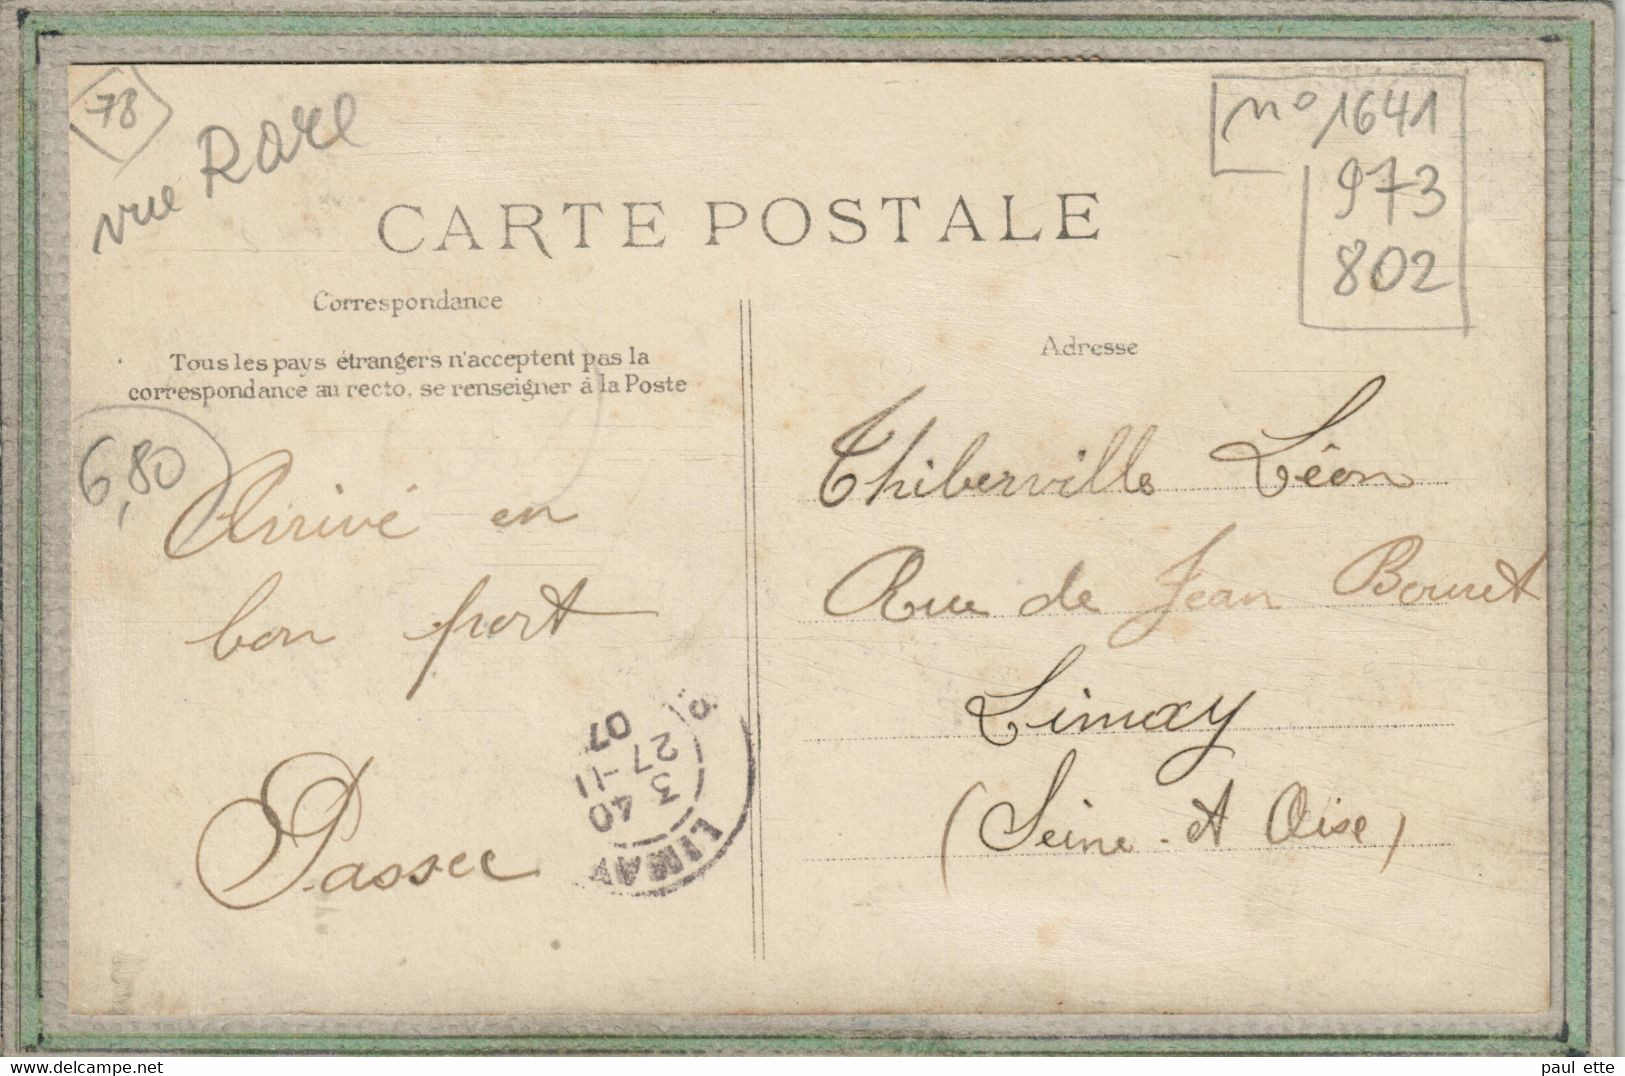 78
vue Rare
n° 1641
973
802
CARTE POSTALE
Correspondance
Tous les pays étrangers n'acceptent pas la
correspondance au recto, se renseigner à la Poste
Adresse
6,80
Arrivé en
bon port
Thiberville Léon
Rue de Jean Bouret
Limay
(Seine-et Oise)
LIMAY
3 40
27-11
07
delcampe.net
paul ette